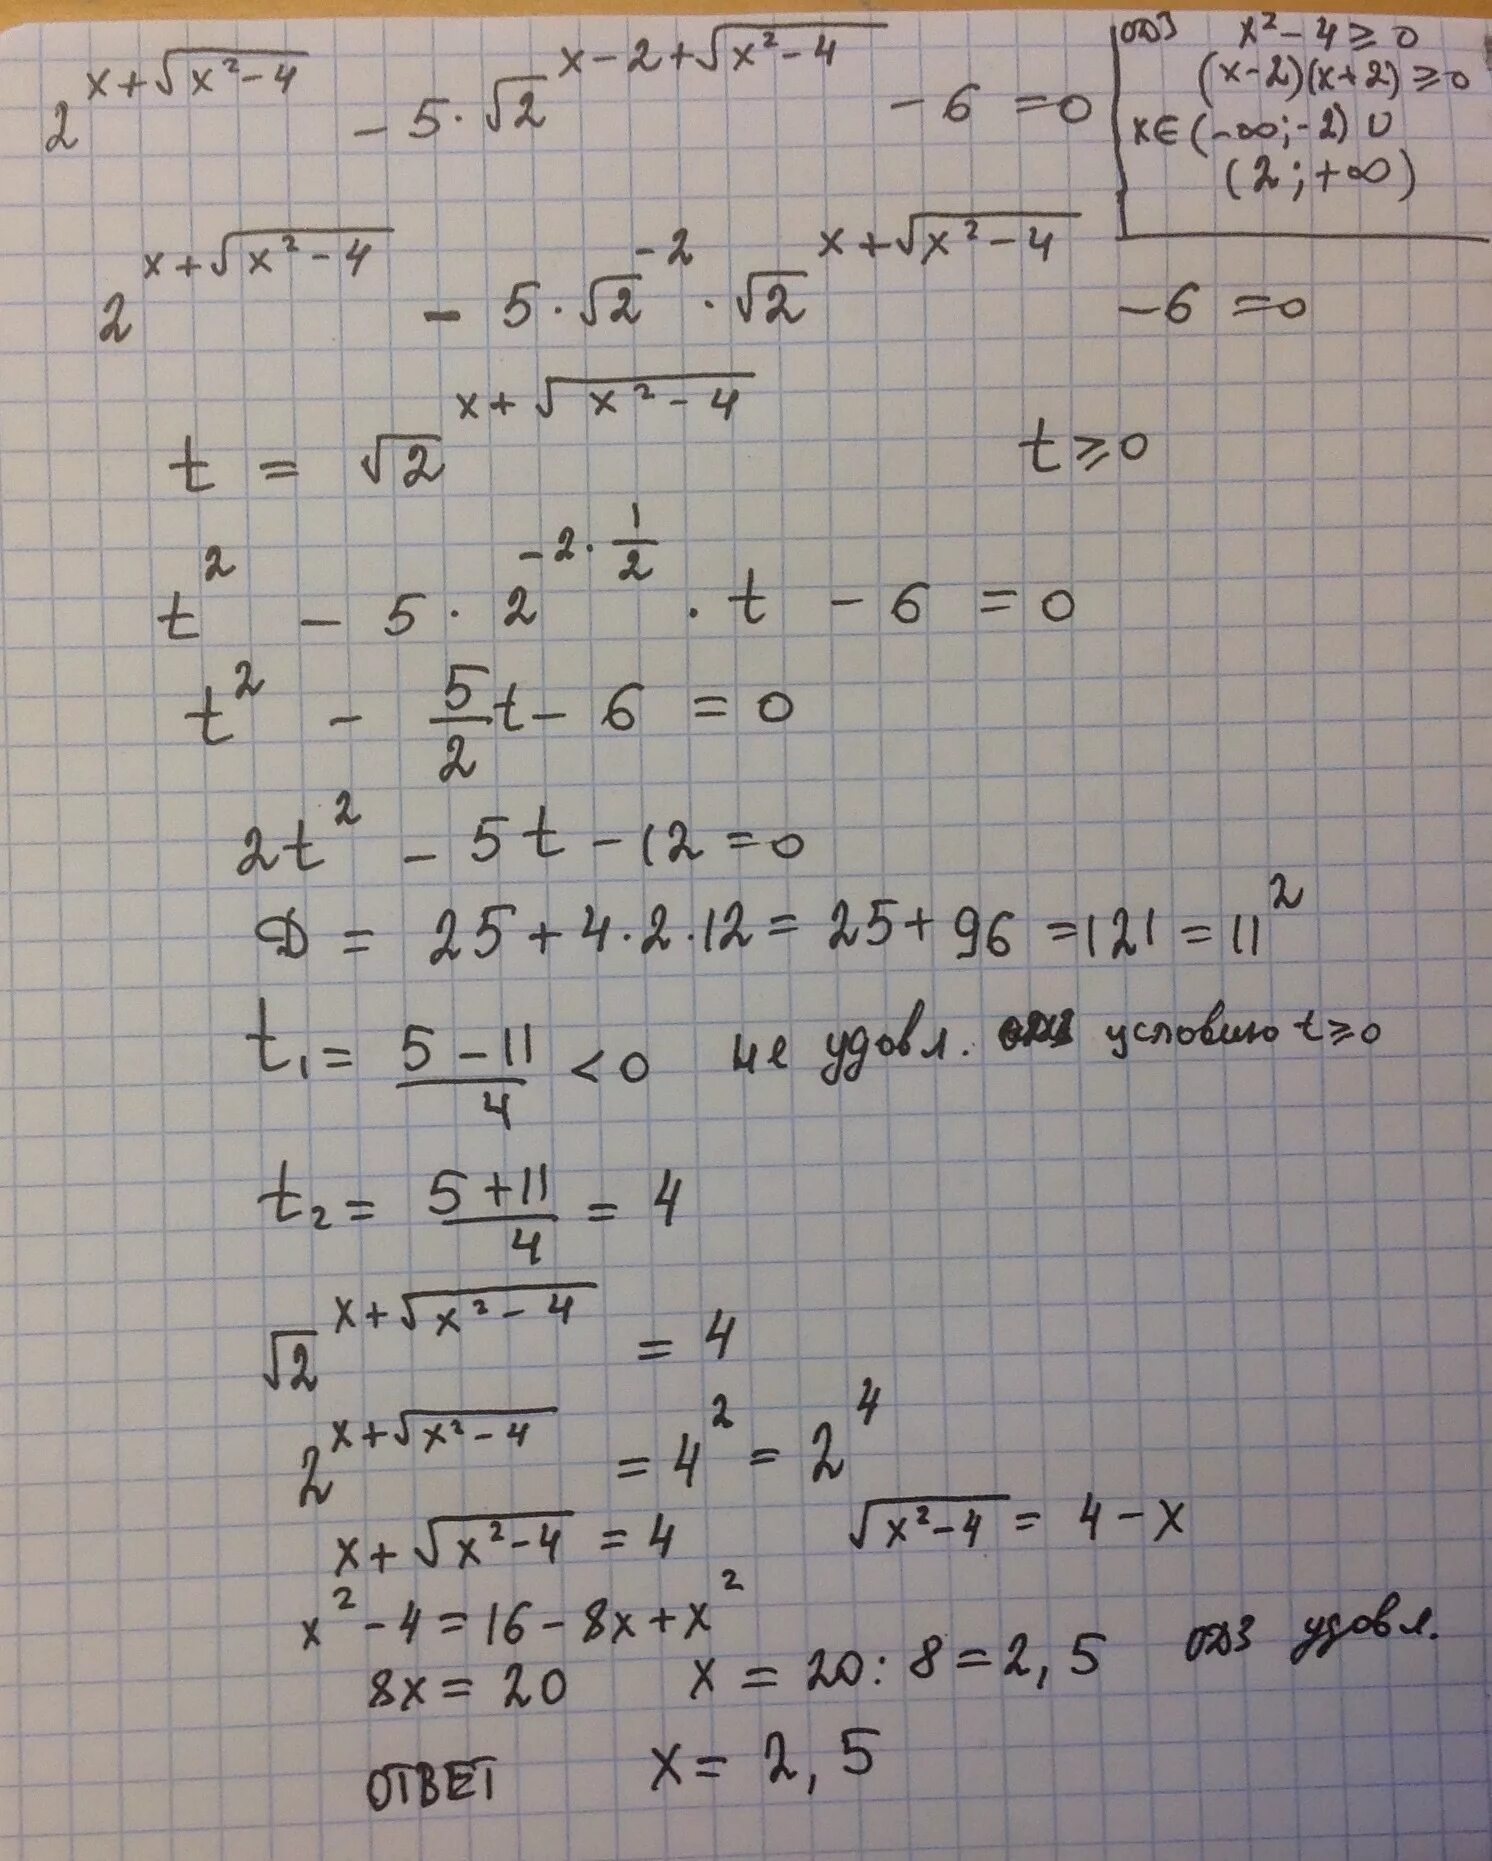 2^{x+√(x²-4)} - 5·√2^{x-2+√(x²-4)} - 6 = 0
ОДЗ x²-4 ≥ 0
(x-2)(x+2) ≥ 0
x∈(-∞;-2) ∪
(2;+∞)
2^{x+√(x²-4)} - 5·√2^{-2}·√2^{x+√(x²-4)} - 6 = 0
t = √2^{x+√(x²-4)} t ≥ 0
t² - 5·2^{-2·1/2}·t - 6 = 0
t² - 5/2 t - 6 = 0
2t² - 5t - 12 = 0
D = 25 + 4·2·12 = 25 + 96 = 121 = 11²
t₁ = (5-11)/4 < 0 не удовл. условию t ≥ 0
t₂ = (5+11)/4 = 4
√2^{x+√(x²-4)} = 4
2^{x+√(x²-4)} = 4² = 2⁴
x+√(x²-4) = 4 √(x²-4) = 4-x
x²-4 = 16-8x+x²
8x = 20 x = 20:8 = 2,5 ОДЗ удовл.
ОТВЕТ x = 2,5